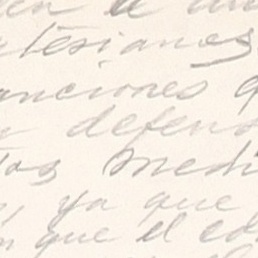 en de una
tesianos
anciones q
defen
tos medi
, ya que
n que el e